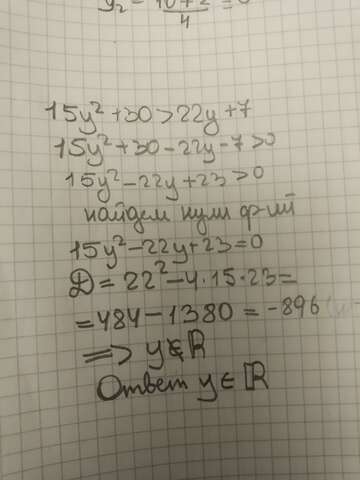 15y²+30>22y+7
15y²+30-22y-7>0
15y²-22y+23>0
найдем нули ф-ий
15y²-22y+23=0
Д=22²-4·15·23=
=484-1380=-896
⟹ y∉ℝ
Ответ y∈ℝ